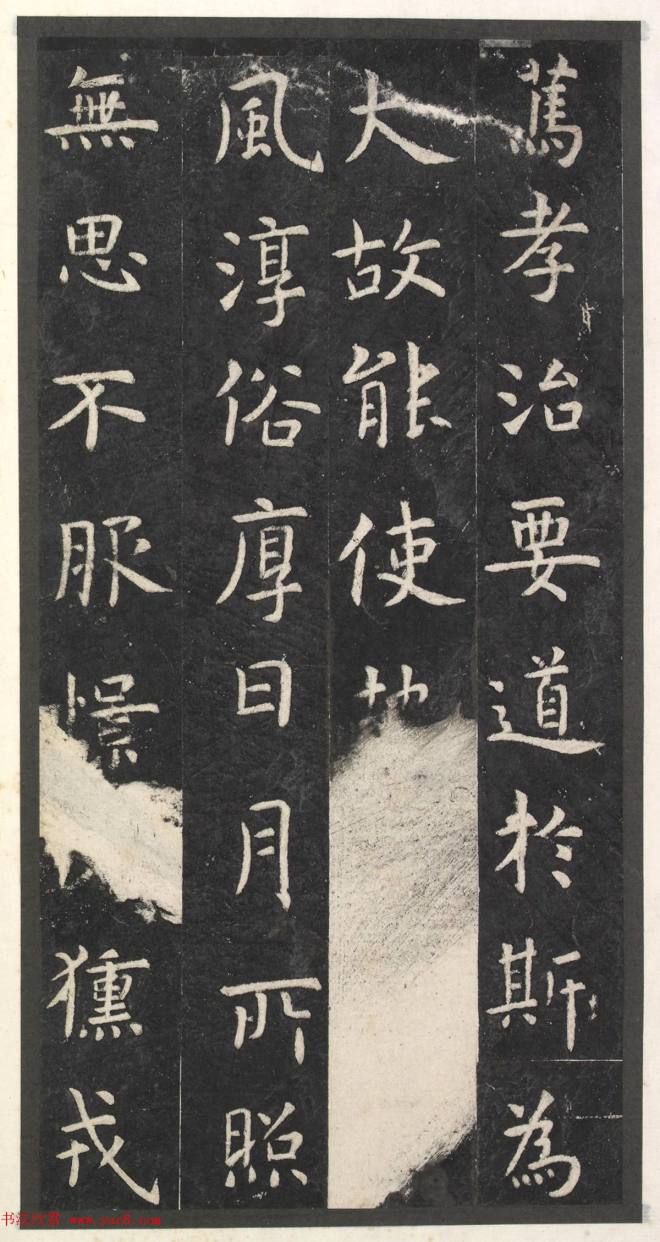 篤孝治要道於斯為
大故能使
風淳俗厚日月所照
無思不服憬獯戎
书法欣赏 www.yac8.com